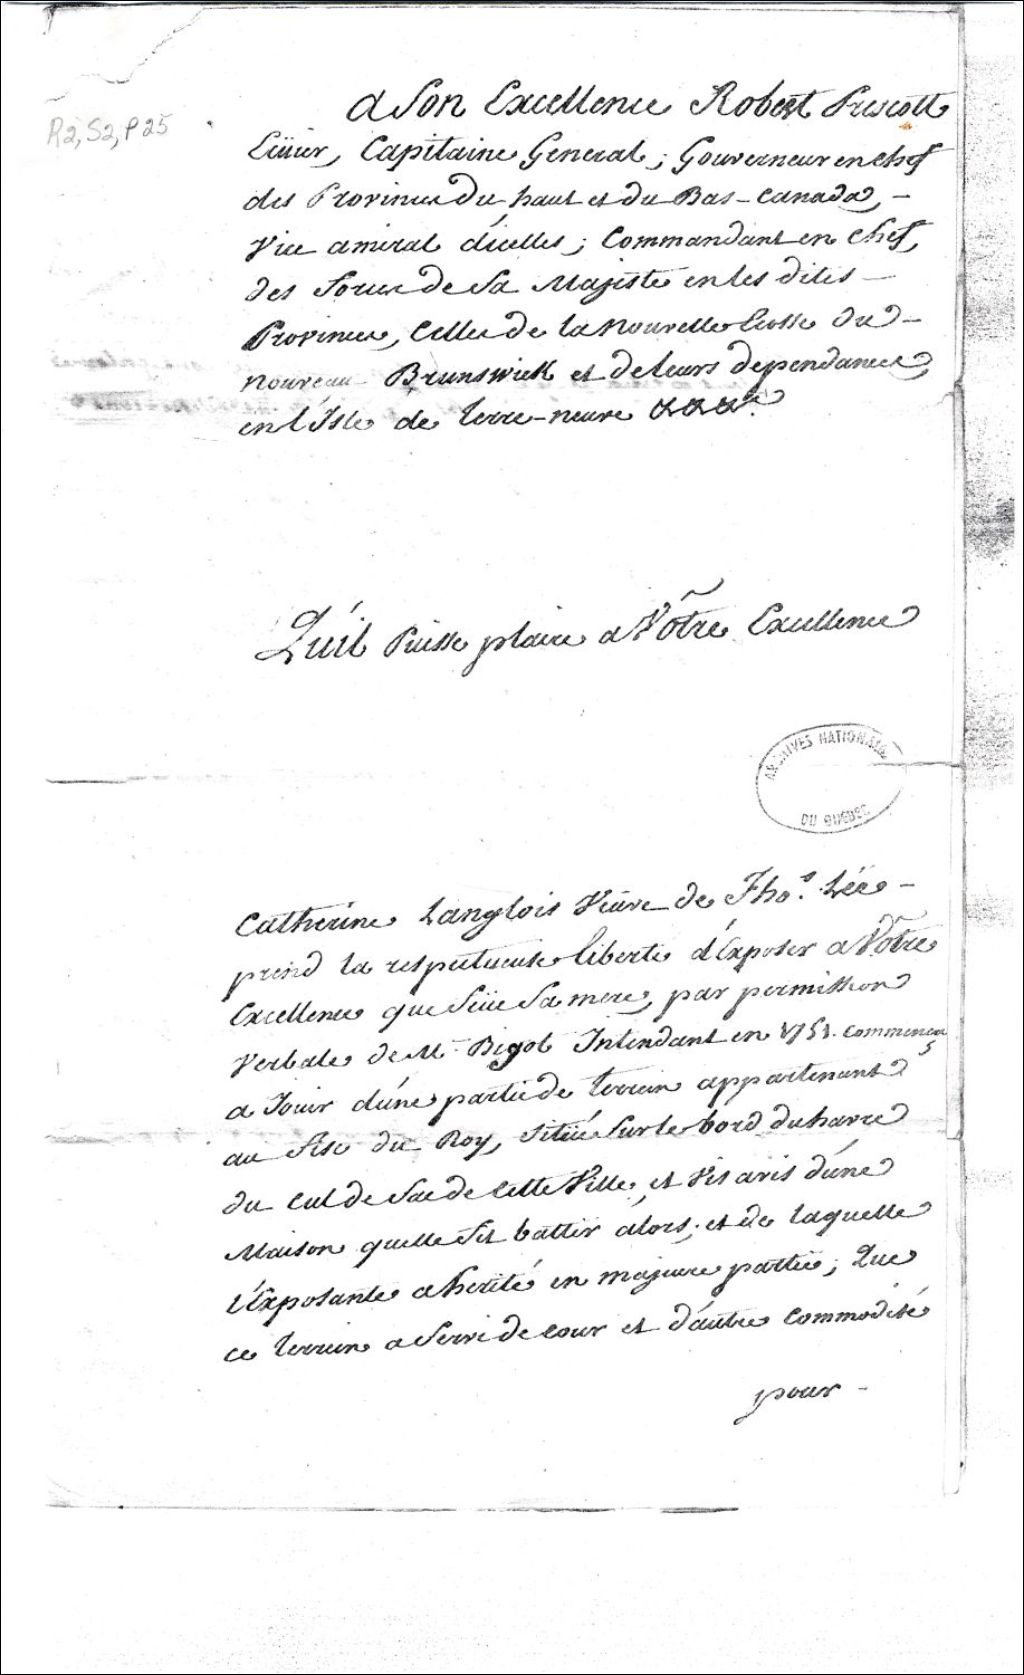 R2, S2, P25
A Son Excellence Robert Prescott
Ecüier, Capitaine General, Gouverneur en chef
des Provinces du haut et du Bas-Canada, -
Vice amiral d'icelles; Commandant en Chef,
des Forces de Sa Majesté en les dites -
Provinces, Celles de la Nouvelle Ecosse du -
Nouveau Brunswick et de leurs dependances,
en l'Isle de terre-neuve &&&ª.
Qu'il Puisse plaire a Vôtre Excellence
ARCHIVES NATIONALES
DU QUÉBEC
Catherine Langlois Veüve de Tho.s Lée -
prend la respectueuse liberté d'Exposer a Vôtre
Excellence que feüe Sa mere, par permission
Verbale de Mr. Bigot Intendant en 1751. Commença
a Jouir d'une partie de terrein appartenant
au fisc du Roy, Sitüé Sur le bord du havre
du Cul de Sac de Cette Ville, et Vis avis d'une
Maison quelle fit battir alors; et de laquelle
l'Exposante a herité en majeure partie; Que
ce terrein a Servi de cour et d'autre Commodité
pour -